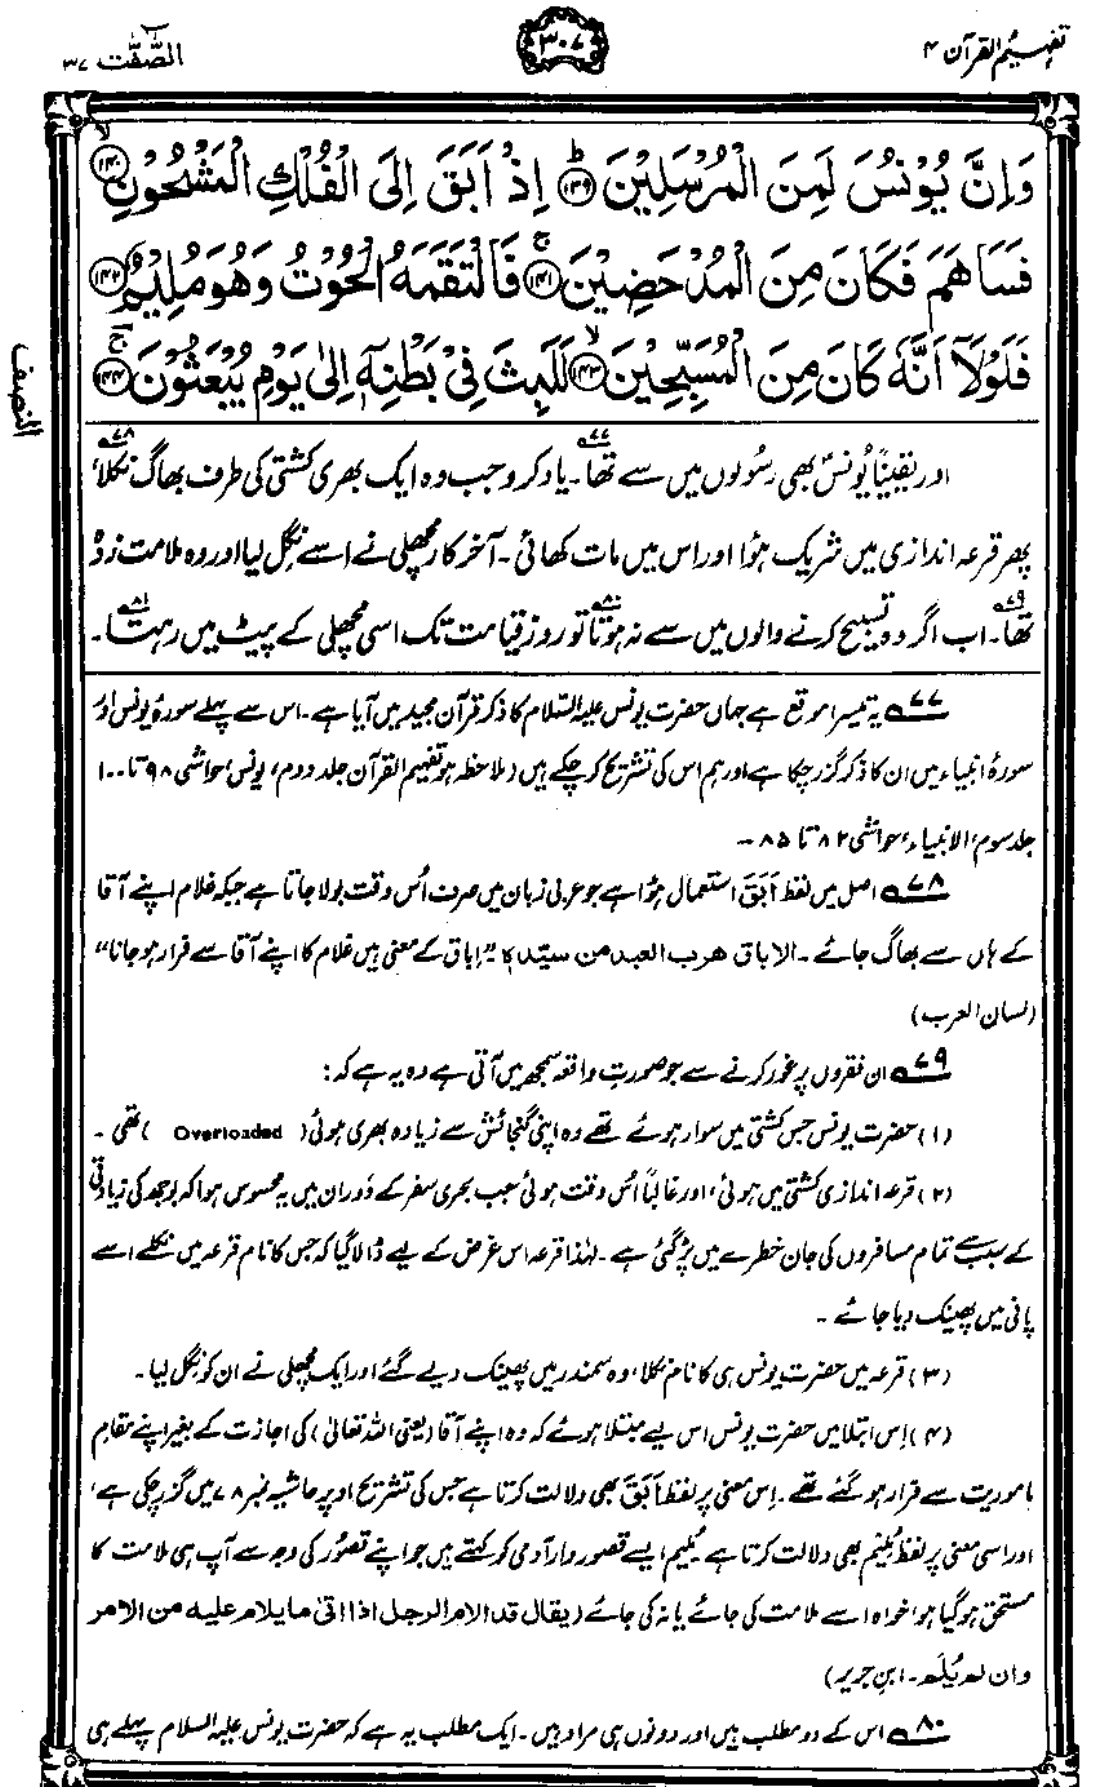 تفہیم القرآن ۴
۳۰۷
الصّٰفّٰت ۳۷
وَاِنَّ يُوْنُسَ لَمِنَ الْمُرْسَلِيْنَ ﴿۱۳۹﴾ؕ اِذْ اَبَقَ اِلَى الْفُلْكِ الْمَشْحُوْنِ ﴿۱۴۰﴾ۙ
فَسَاهَمَ فَكَانَ مِنَ الْمُدْحَضِيْنَ ﴿۱۴۱﴾ۚ فَالْتَقَمَهُ الْحُوْتُ وَهُوَ مُلِيْمٌ ﴿۱۴۲﴾
فَلَوْلَاۤ اَنَّهٗ كَانَ مِنَ الْمُسَبِّحِيْنَ ﴿۱۴۳﴾ۙ لَلَبِثَ فِيْ بَطْنِهٖۤ اِلٰى يَوْمِ يُبْعَثُوْنَ ﴿۱۴۴﴾ۚ
النصف
اور یقیناً یُونسؑ بھی رسُولوں میں سے تھا۷۷۔ یاد کرو جب وہ ایک بھری کشتی کی طرف بھاگ نکلا۷۸،
پھر قرعہ اندازی میں شریک ہُوا اور اس میں مات کھائی۔ آخرکار مچھلی نے اسے نِگل لیا اور وہ ملامت زدہ
تھا۷۹۔ اب اگر وہ تسبیح کرنے والوں میں سے نہ ہوتا۸۰ تو روزِ قیامت تک اسی مچھلی کے پیٹ میں رہتا۸۱۔
۷۷ یہ تیسرا موقع ہے جہاں حضرت یونس علیہ السّلام کا ذکر قرآن مجید میں آیا ہے۔ اس سے پہلے سورۂ یونس اور
سورۂ انبیاء میں ان کا ذکر گزر چکا ہے اور ہم اس کی تشریح کر چکے ہیں (ملاحظہ ہو تفہیم القرآن جلد دوم، یونس، حواشی ۹۸ تا ۱۰۰
جلد سوم، الانبیاء، حواشی ۸۲ تا ۸۵۔
۷۸ اصل میں لفظ اَبَقَ استعمال ہُوا ہے جو عربی زبان میں صرف اُس وقت بولا جاتا ہے جبکہ غلام اپنے آقا
کے ہاں سے بھاگ جائے۔ الاباق ھرب العبد من سیّدہ "اِباق کے معنی ہیں غلام کا اپنے آقا سے فرار ہو جانا"
(لسان العرب)
۷۹ ان فقروں پر غور کرنے سے جو صورتِ واقعہ سمجھ میں آتی ہے وہ یہ ہے کہ:
(۱) حضرت یونس جس کشتی میں سوار ہوئے تھے وہ اپنی گنجائش سے زیادہ بھری ہوئی (Overloaded) تھی۔
(۲) قرعہ اندازی کشتی میں ہوئی، اور غالباً اُس وقت ہوئی جب بحری سفر کے دَوران میں یہ محسوس ہوا کہ بوجھ کی زیادتی
کے سبب سے تمام مسافروں کی جان خطرے میں پڑ گئی ہے۔ لہٰذا قرعہ اس غرض کے لیے ڈالا گیا کہ جس کا نام قرعہ میں نکلے اسے
پانی میں پھینک دیا جائے۔
(۳) قرعہ میں حضرت یونس ہی کا نام نکلا، وہ سمندر میں پھینک دیے گئے اور ایک مچھلی نے ان کو نِگل لیا۔
(۴) اِس ابتلا میں حضرت یونس اس لیے مبتلا ہوئے کہ وہ اپنے آقا (یعنی اللہ تعالیٰ) کی اجازت کے بغیر اپنے مقامِ
ماموریت سے فرار ہو گئے تھے۔ اِس معنی پر لفظ اَبَقَ بھی دلالت کرتا ہے جس کی تشریح اوپر حاشیہ نمبر ۷۸ میں گزر چکی ہے،
اور اسی معنی پر لفظ مُلِیْم بھی دلالت کرتا ہے۔ مُلیم ایسے قصور وار آدمی کو کہتے ہیں جو اپنے قصُور کی وجہ سے آپ ہی ملامت کا
مستحق ہو گیا ہو، خواہ اسے ملامت کی جائے یا نہ کی جائے (یقال قد الام الرجل اذا اتیٰ ما یلام علیہ من الامر
وان لم یُلَم۔ ابنِ جریر)
۸۰ اس کے دو مطلب ہیں اور دونوں ہی مراد ہیں۔ ایک مطلب یہ ہے کہ حضرت یونس علیہ السلام پہلے ہی